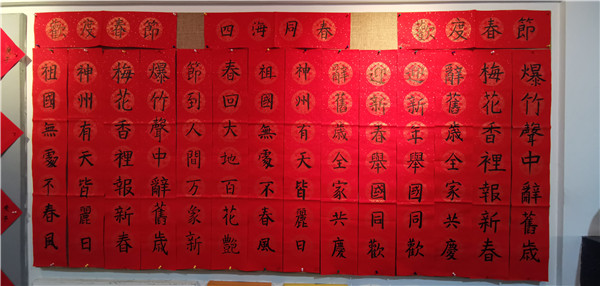 歡度春節
四海同春
歡度春節
爆竹聲中辭舊歲
梅花香裡報新春
辭舊歲全家共慶
迎新年舉國同歡
迎新春舉國同歡
辭舊歲全家共慶
神州有天皆麗日
祖國無處不春風
春回大地百花艷
節到人間万象新
爆竹聲中辭舊歲
梅花香裡報新春
神州有天皆麗日
祖國無處不春風